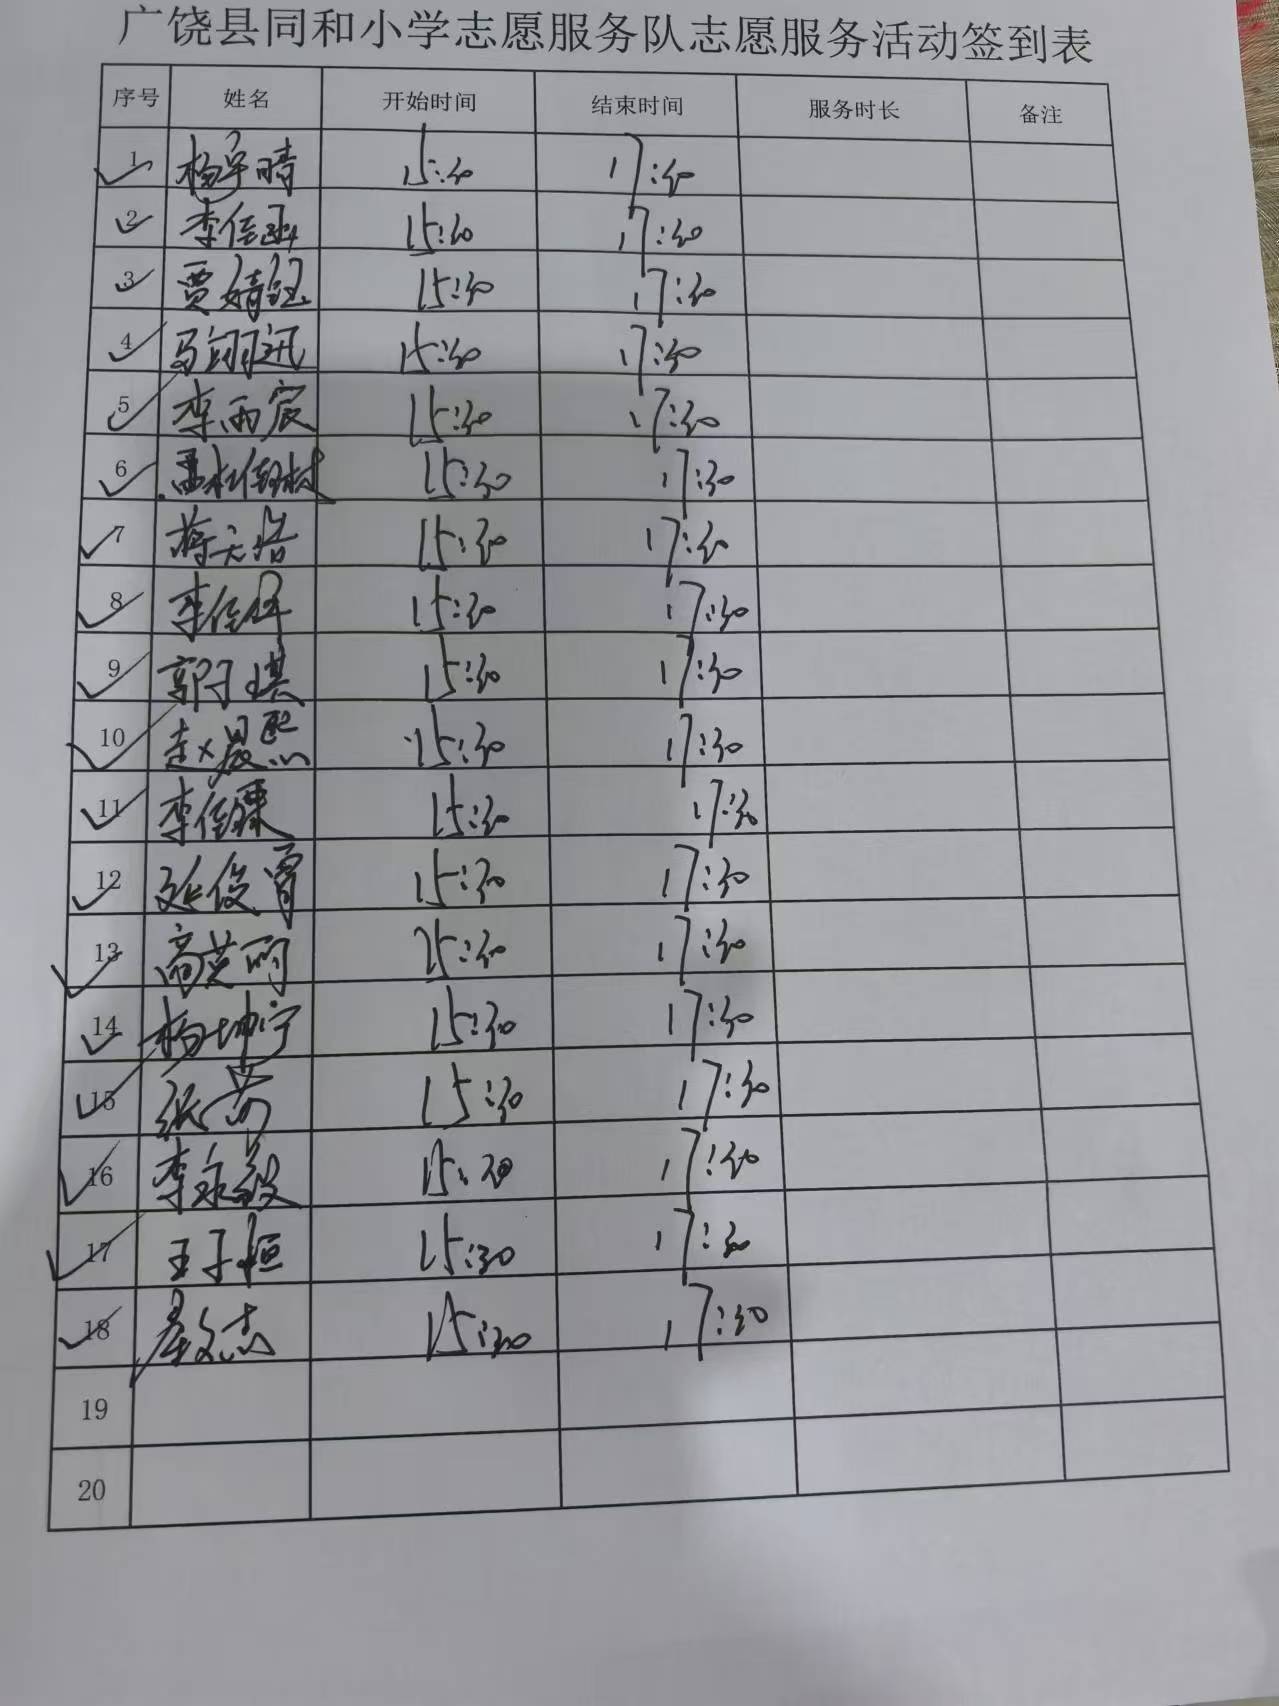 广饶县同和小学志愿服务队志愿服务活动签到表
序号 姓名 开始时间 结束时间 服务时长 备注
1 杨宇晴 15:30 17:30
2 李佳函 15:30 17:30
3 贾婧钰 15:30 17:30
4 马翊迅 15:30 17:30
5 李雨宸 15:30 17:30
6 15:30 17:30
7 蒋天浩 15:30 17:30
8 李佳 15:30 17:30
9 郭子琪 15:30 17:30
10 赵晨熙 15:30 17:30
11 李 15:30 17:30
12 俊 15:30 17:30
13 高 15:30 17:30
14 杨坤宁 15:30 17:30
15 15:30 17:30
16 李 15:30 17:30
17 王子恒 15:30 17:30
18 文志 15:30 17:30
19
20